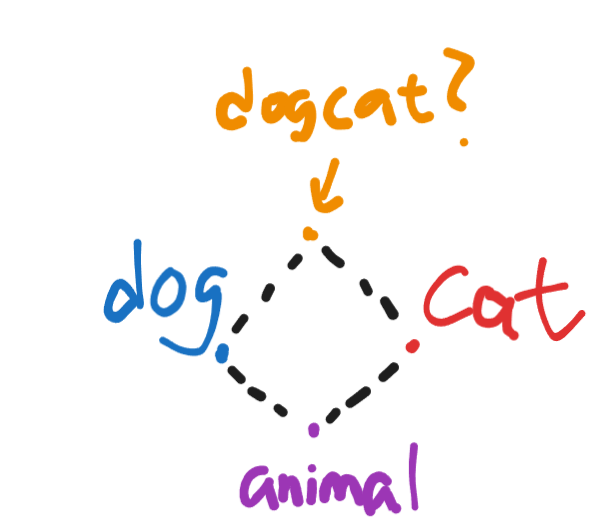 dogcat?
dog
cat
animal